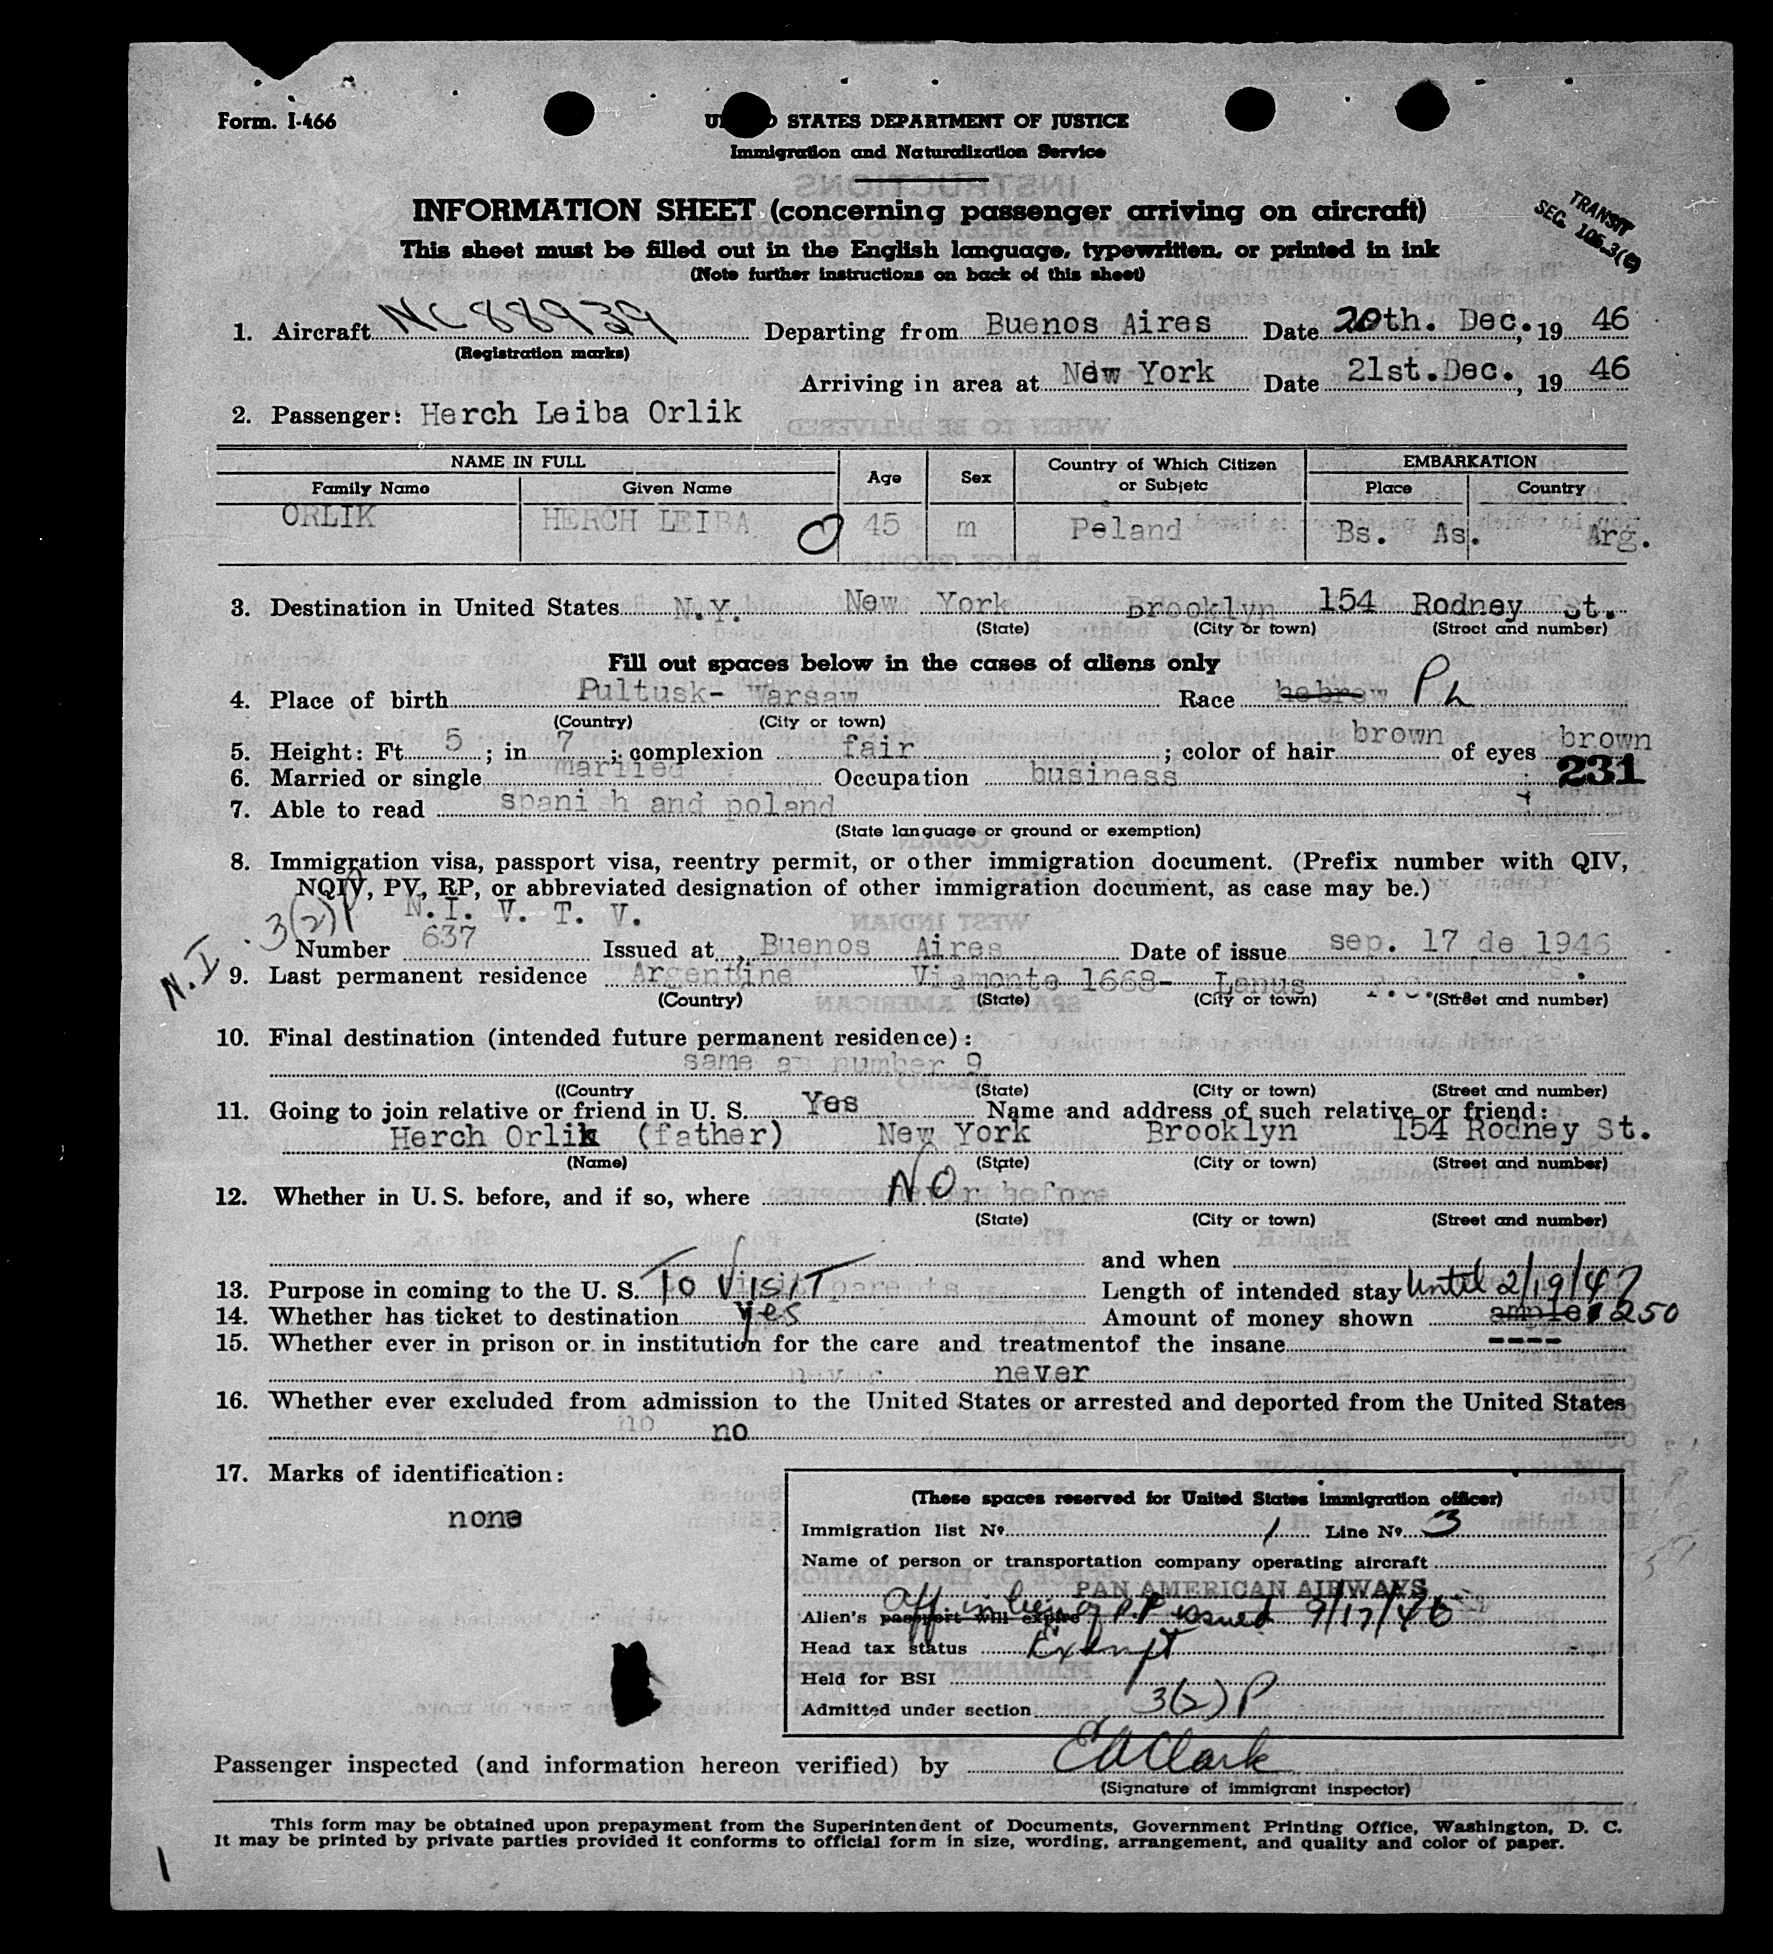 Form. I-466
STATES DEPARTMENT OF JUSTICE
Immigration and Naturalization Service
INFORMATION SHEET (concerning passenger arriving on aircraft)
This sheet must be filled out in the English language, typewritten, or printed in ink
(Note further instructions on back of this sheet)
TRANSIT
SEC. 105.3(e)
1. Aircraft NC 88939 Departing from Buenos Aires Date 20th. Dec., 19 46
(Registration marks)
Arriving in area at New York Date 21st. Dec., 19 46
2. Passenger: Herch Leiba Orlik
NAME IN FULL Age Sex Country of Which Citizen or Subjetc EMBARKATION
Family Name Given Name Place Country
ORLIK HERCH LEIBA 45 m Poland Bs. As. Arg.
3. Destination in United States N.Y. New York Brooklyn 154 Rodney St.
(State) (City or town) (Stroct and number)
Fill out spaces below in the cases of aliens only
4. Place of birth Pultusk- Warsaw Race hebrew
(Country) (City or town)
5. Height: Ft 5 ; in 7 ; complexion fair ; color of hair brown of eyes brown
6. Married or single married Occupation business 231
7. Able to read spanish and poland
(State language or ground or exemption)
8. Immigration visa, passport visa, reentry permit, or other immigration document. (Prefix number with QIV,
NQIV, PV, RP, or abbreviated designation of other immigration document, as case may be.)
3(2)P N. I. V. T. V.
Number 637 Issued at Buenos Aires Date of issue sep. 17 de 1946
N.I 9. Last permanent residence Argentine Viamonte 1668- Lanus F.C.S.
(Country) (State) (City or town) (Street and number)
10. Final destination (intended future permanent residence):
same as number 9
((Country (State) (City or town) (Street and number)
11. Going to join relative or friend in U. S. Yes Name and address of such relative or friend:
Herch Orlik (father) New York Brooklyn 154 Rodney St.
(Name) (State) (City or town) (Street and number)
12. Whether in U. S. before, and if so, where NO before
(State) (City or town) (Street and number)
and when
13. Purpose in coming to the U. S. To Visit parents Length of intended stay Until 2/19/47
14. Whether has ticket to destination Yes Amount of money shown ample $250
15. Whether ever in prison or in institution for the care and treatmentof the insane ----
never never
16. Whether ever excluded from admission to the United States or arrested and deported from the United States
no no
17. Marks of identification:
none
(These spaces reserved for United States immigration officer)
Immigration list Nº 1 Line Nº 3
Name of person or transportation company operating aircraft
PAN AMERICAN AIRWAYS
Alien's passport will expire Aff in lieu of P.P issued 9/17/46
Head tax status Exempt
Held for BSI
Admitted under section 3(2) P
Passenger inspected (and information hereon verified) by EA Clark
(Signature of immigrant inspector)
This form may be obtained upon prepayment from the Superintendent of Documents, Government Printing Office, Washington, D. C.
It may be printed by private parties provided it conforms to official form in size, wording, arrangement, and quality and color of paper.